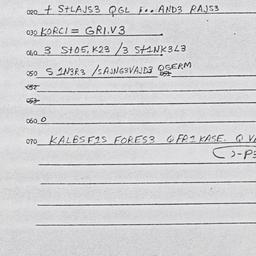 020 + S+LAJS3 QGL F.. AND3 RAJS3
030 KORCI = GRI.V3
040 3 S+O5, K23 /3 S+1NK3L3
050 S 1N3R3 /SAJNG3VAJD3 QSERM
052
053
060 O
070 KALBSF1S FORES3 QFR1KASE. Q VA